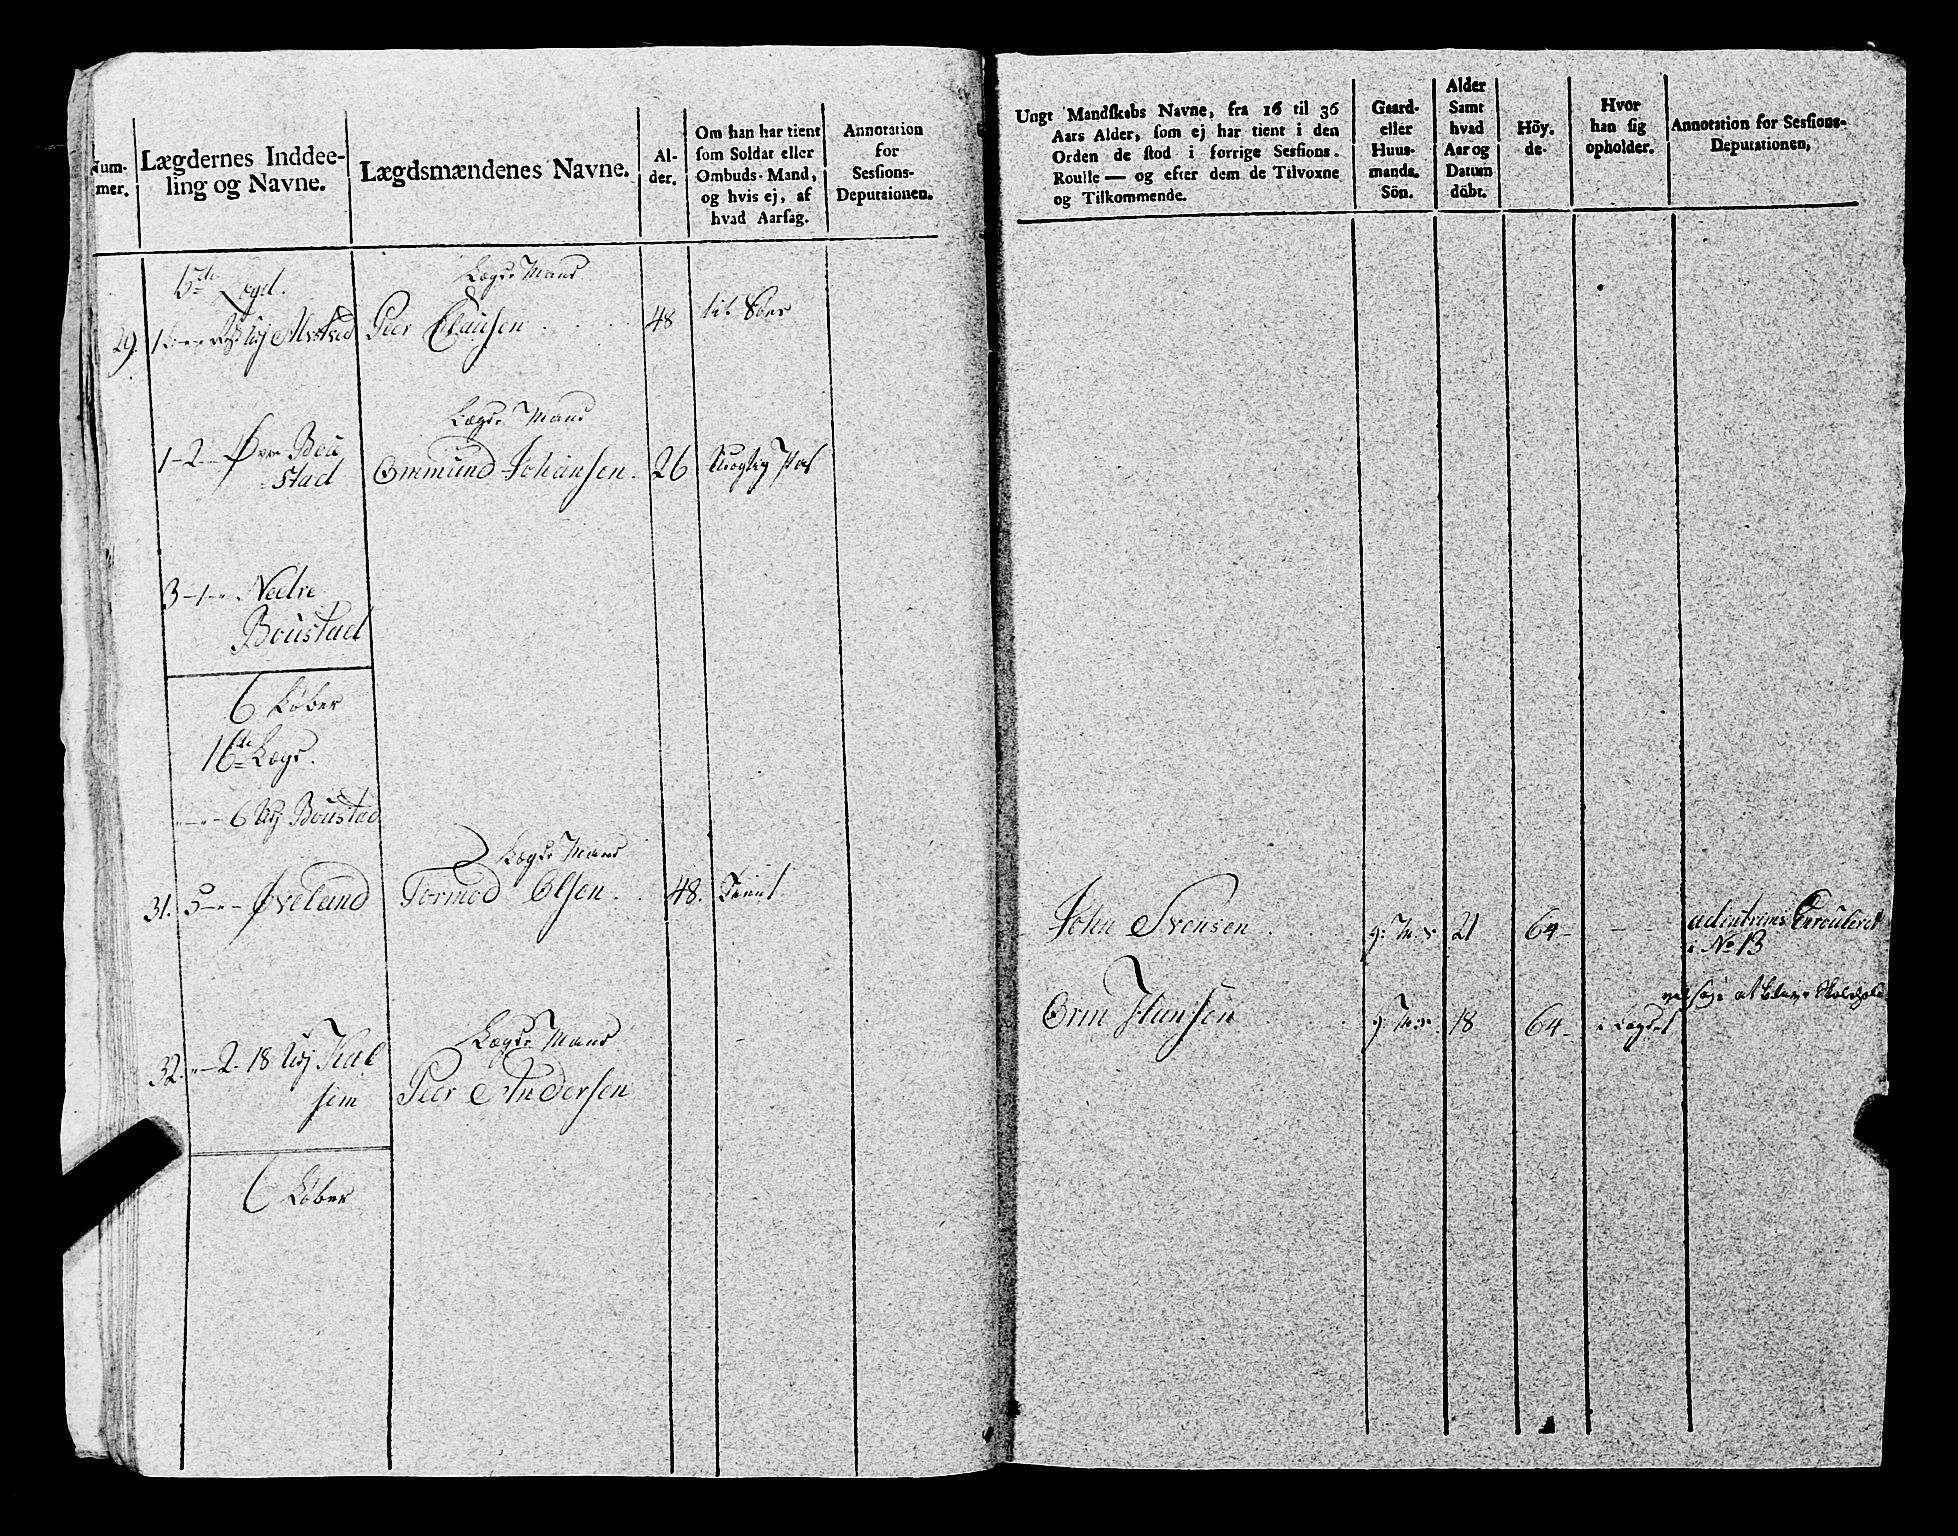 Num-
mer.
Lægdernes Inddee-
ling og Navne.
Lægdsmændenes Navne.
Al-
der.
Om han har tient
som Soldat eller
Ombuds-Mand,
og hvis ej, af
hvad Aarsag.
Annotation
for
Sessions-
Deputationen.
15de Lægd.
Lægds Mand
29. 1
Peer Clausen 48
Lægds Mand
1-2- Øvre Bou
stad
Ommund Johansen. 26
3-1-"- Nedre
Boustad
6 Løber
16de Lægd.
"-"-6 Boustad
Lægds Mand
31. 5-"- Øveland Tormod Olsen. 48. Tient
Lægds Mand
32. "-2. 18
Peer Andersen
6 Løber
Ungt Mandskabs Navne, fra 16 til 36
Aars Alder, som ej har tient i den
Orden de stod i forrige Sessions-
Roulle — og efter dem de Tilvoxne
og Tilkommende.
Gaard-
eller
Huus-
mands.
Sön.
Alder
Samt
hvad
Aar og
Datum
döbt.
Höy-
de.
Hvor
han sig
opholder.
Annotation for Sessions-
Deputationen,
John Svensen g: M: S 21 64 - Enrouleret
i No 13
Orm Hansen g: M: S. 18 64 - i Lægdet